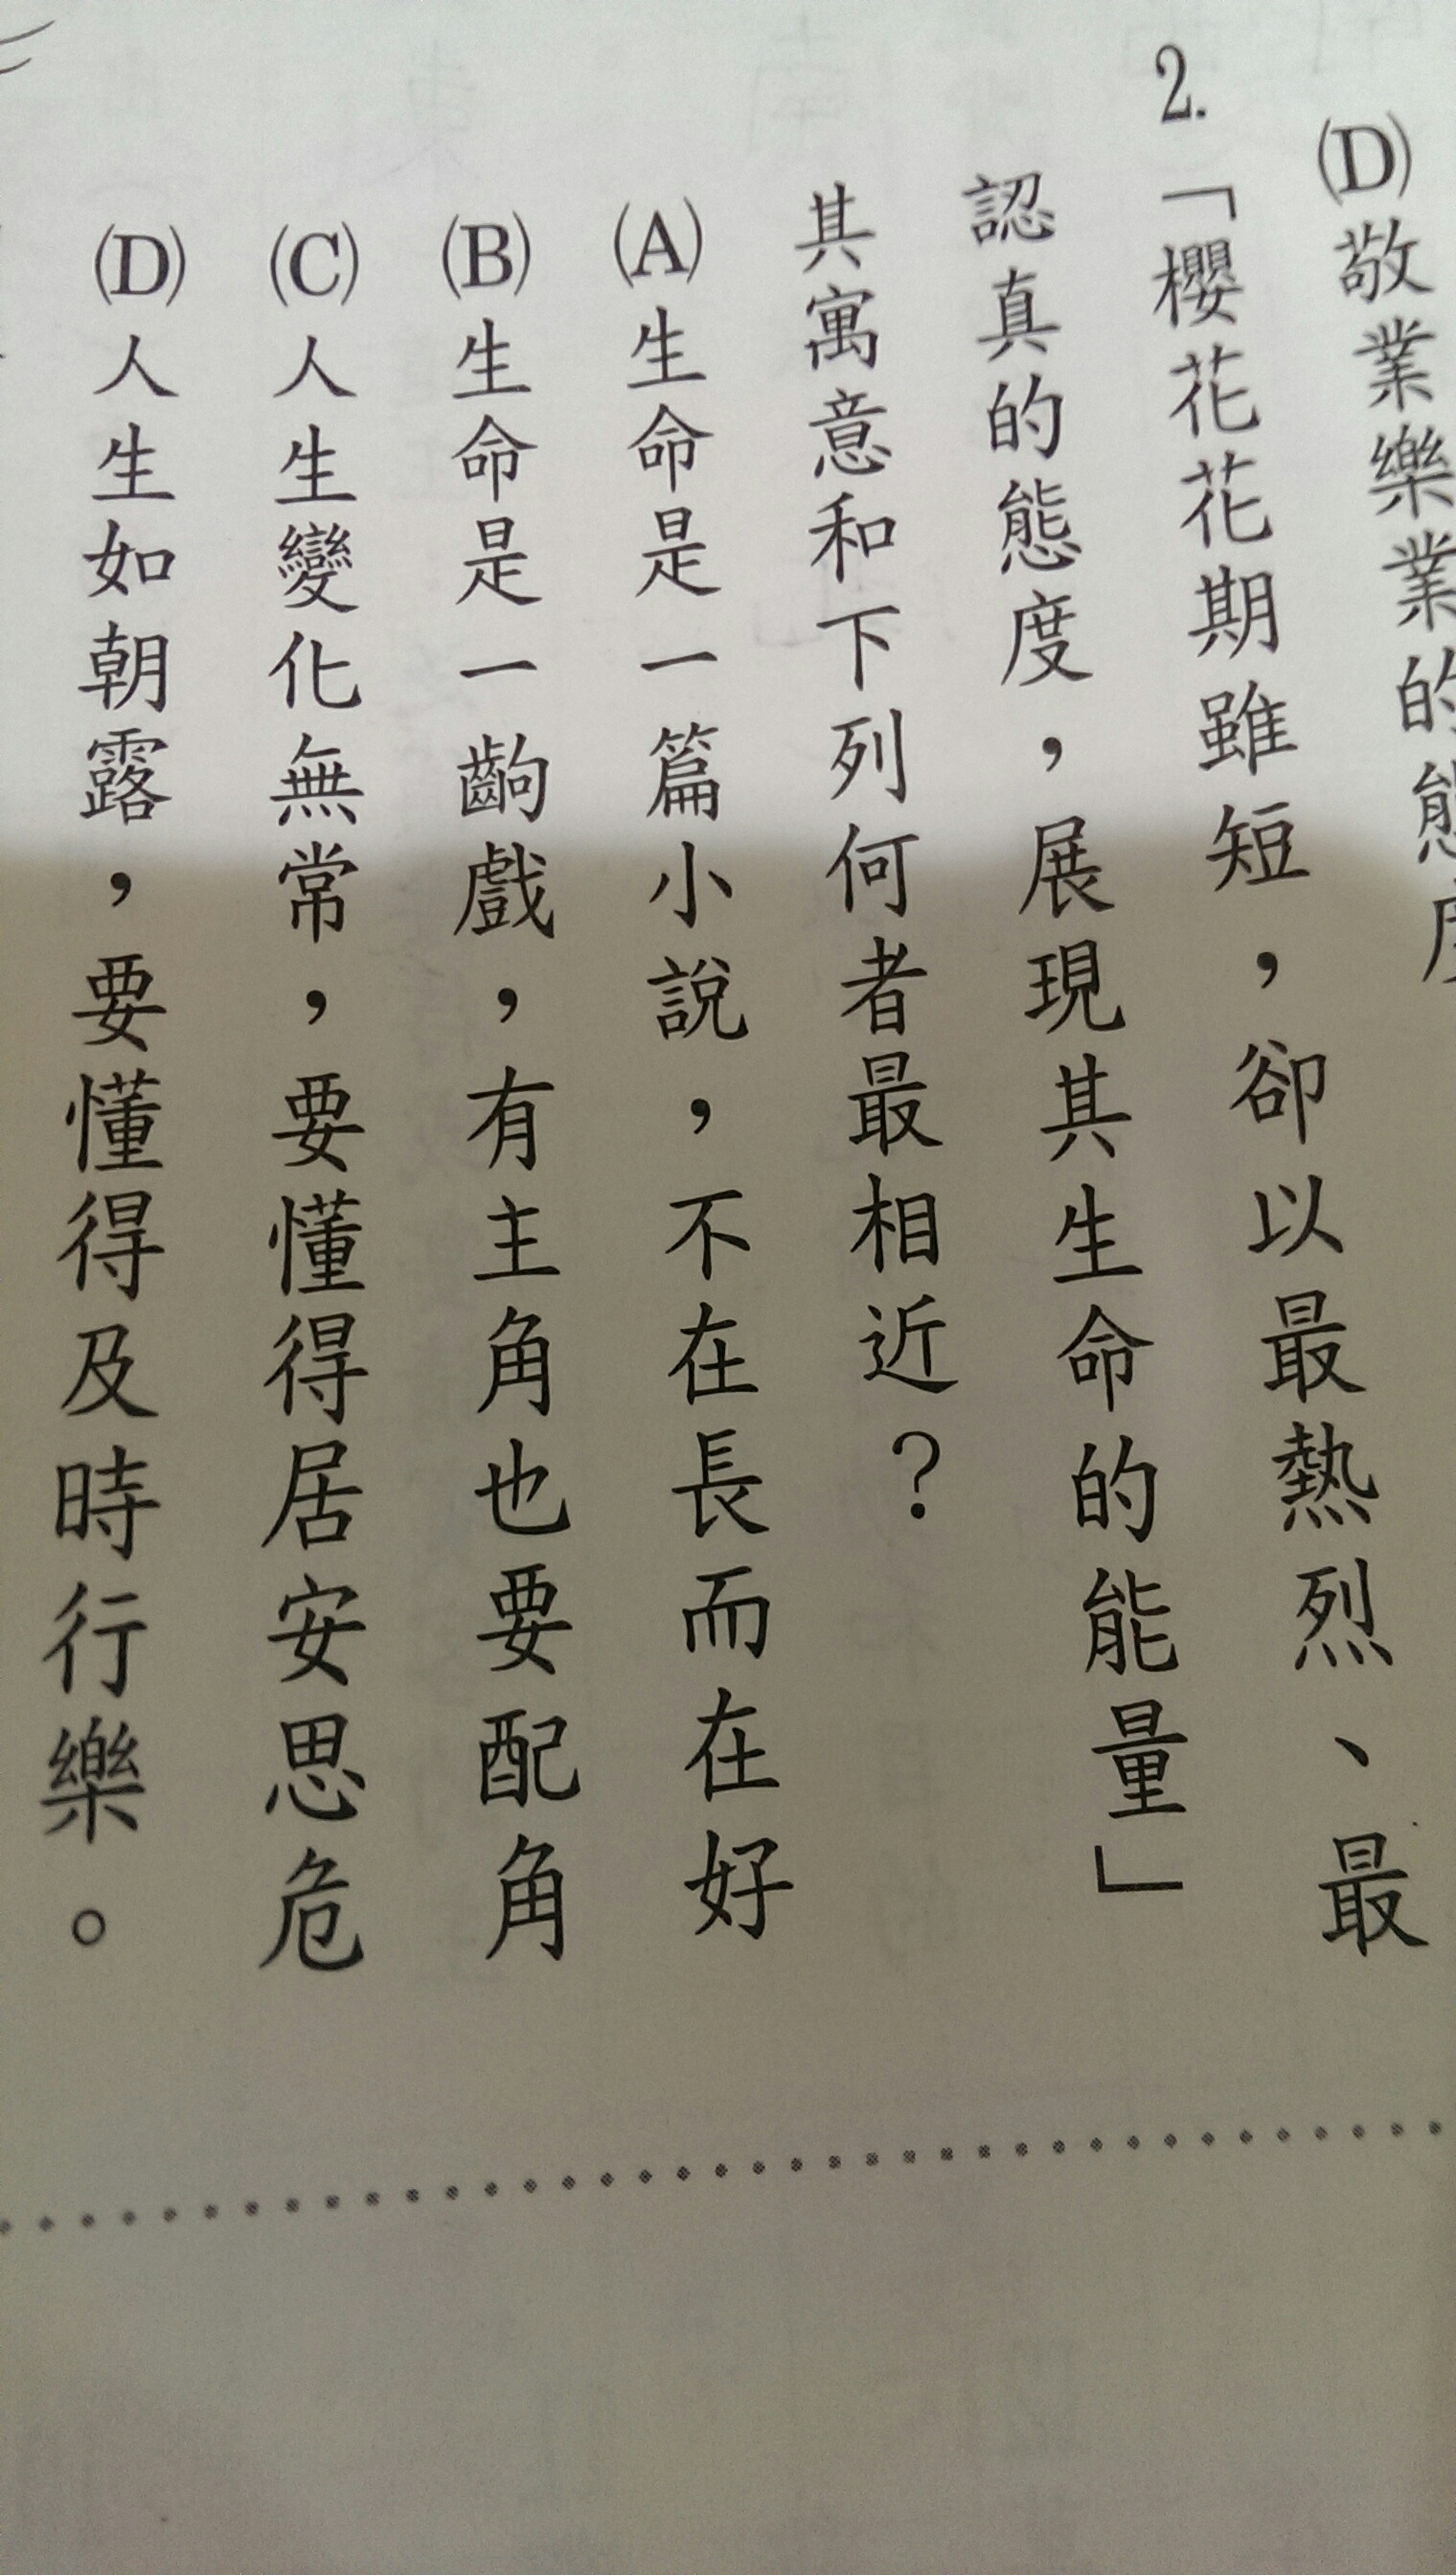 (D)敬業樂業的態度
2.「櫻花花期雖短，卻以最熱烈、最
認真的態度，展現其生命的能量」
其寓意和下列何者最相近？
(A)生命是一篇小說，不在長而在好
(B)生命是一齣戲，有主角也要配角
(C)人生變化無常，要懂得居安思危
(D)人生如朝露，要懂得及時行樂。